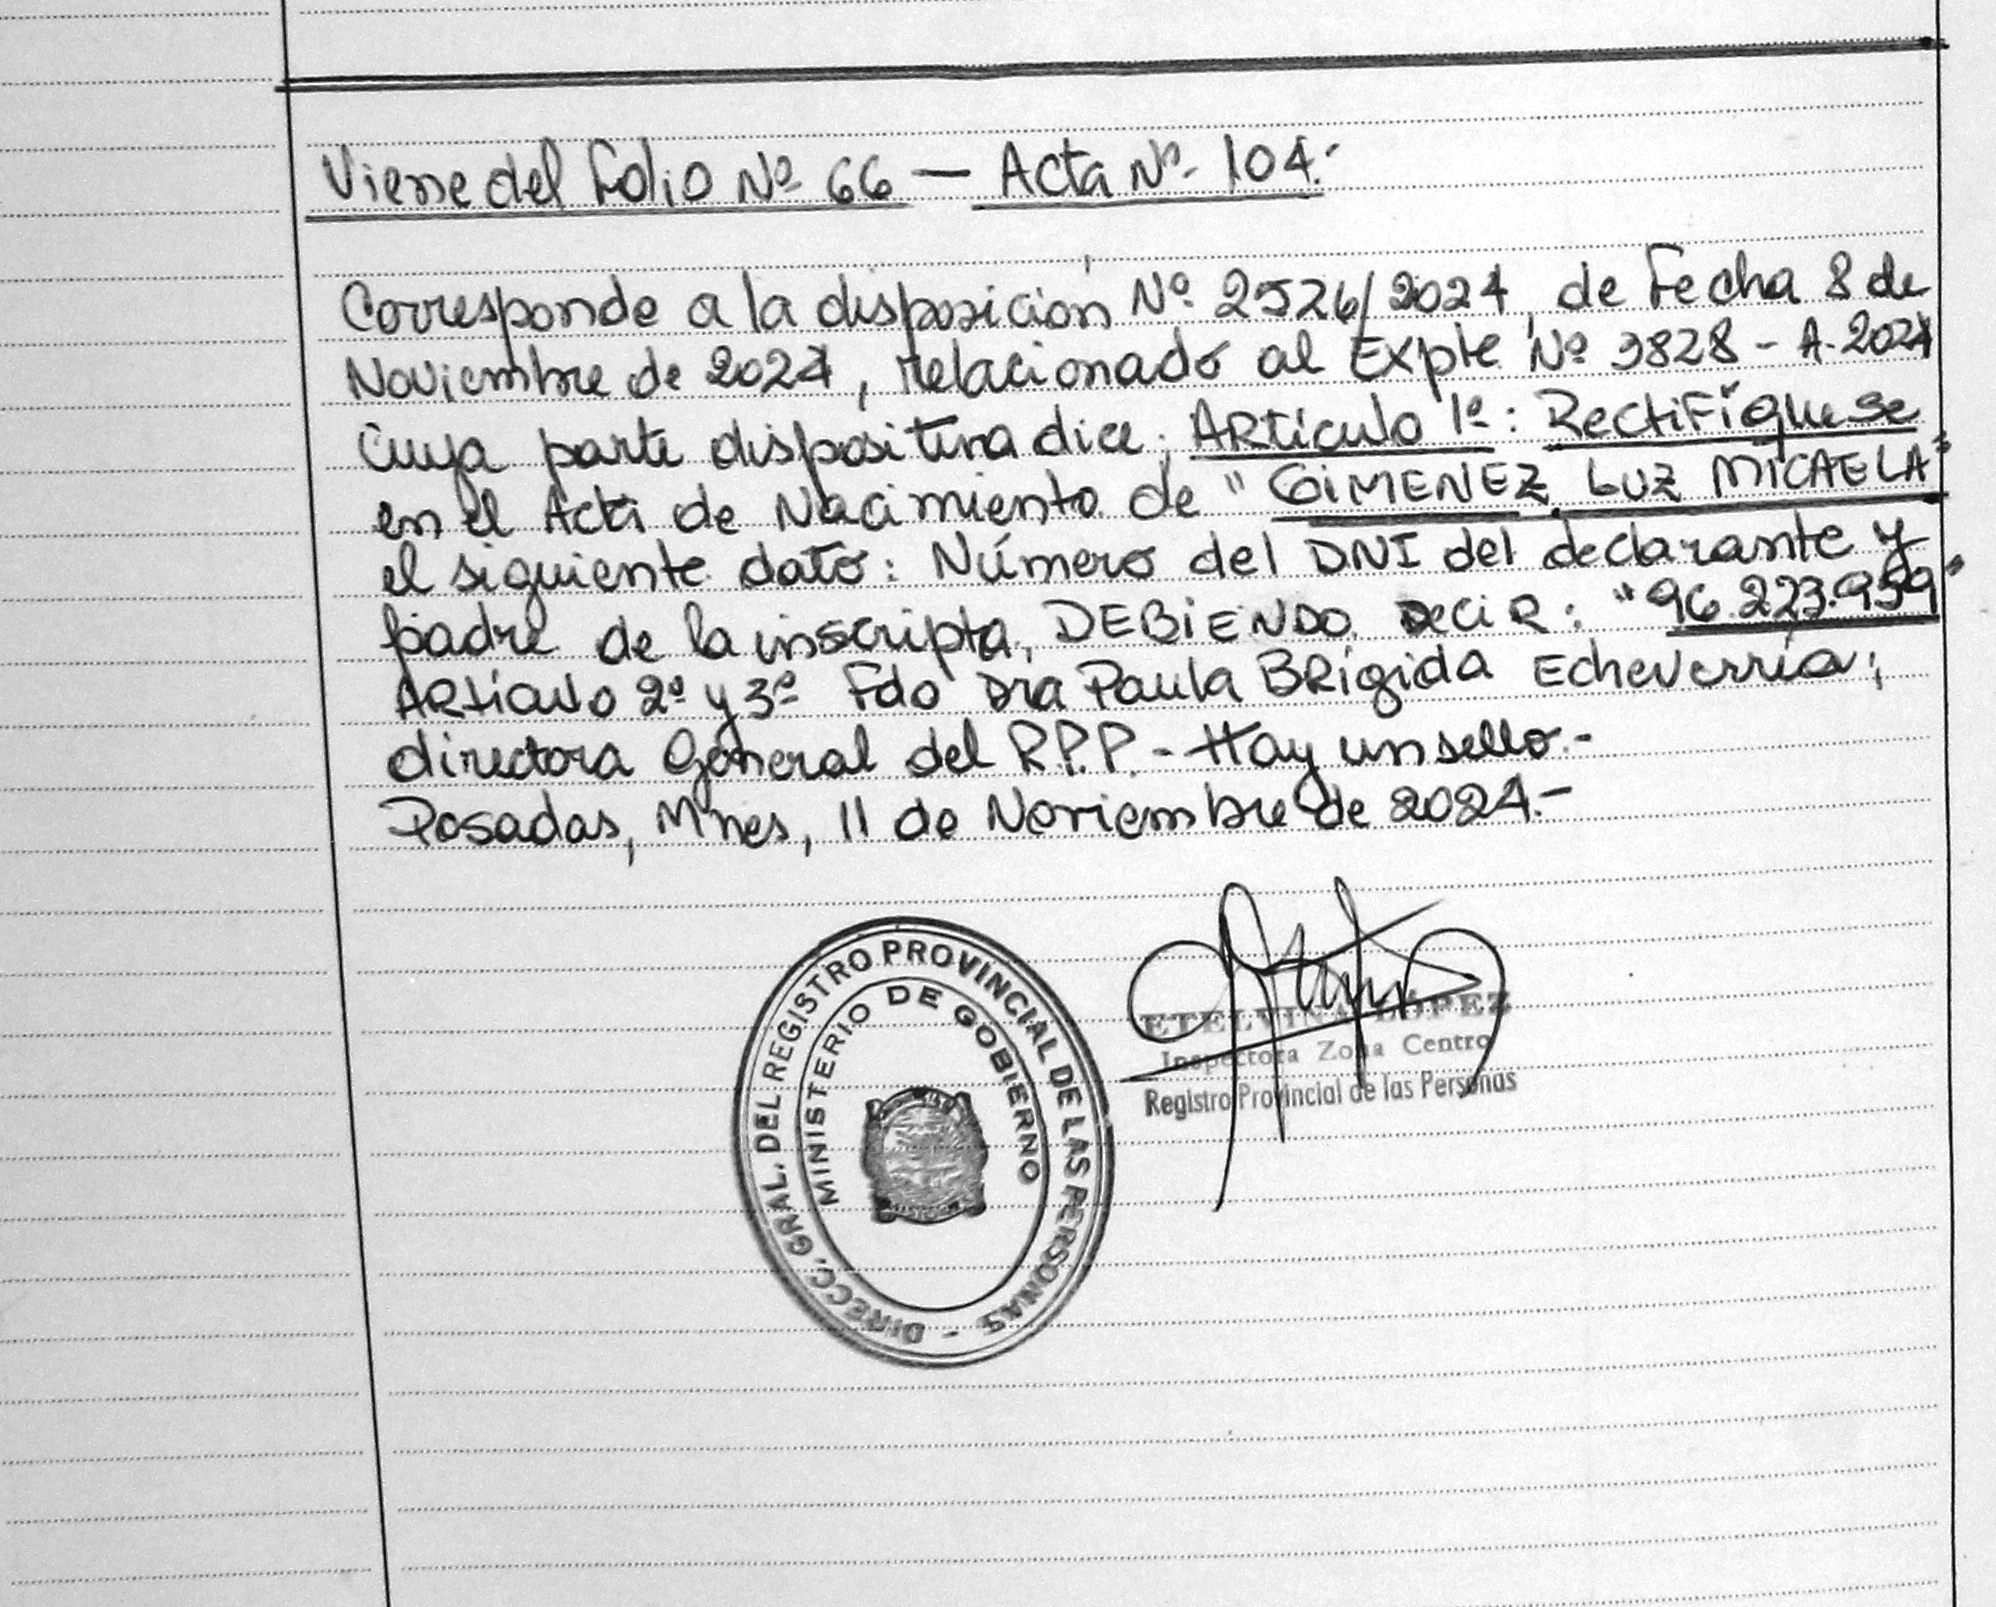 Viene del Folio Nº 66 — Acta Nº 104.-
Corresponde a la disposición Nº 2526/2024, de Fecha 8 de
Noviembre de 2024, relacionado al Expte Nº 3828 - A-2024
Cuya parte dispositiva dice: ARtículo 1º: RectiFíquese
en el Acta de Nacimiento de "GIMENEZ, LUZ MICAELA"
el siguiente dato: Número del DNI del declarante y
padre de la inscripta, DEBIENDO DeciR: "96.223.959"
ARtículo 2º y 3º Fdo Dra Paula BRígida Echeverría;
directora General del R.P.P. - Hay un sello.-
Posadas, Mnes, 11 de Noviembre de 2024.-
DIRECC. GRAL. DEL REGISTRO PROVINCIAL DE LAS PERSONAS -
MINISTERIO DE GOBIERNO
ETELVINA LÓPEZ
Inspectora Zona Centro
Registro Provincial de las Personas